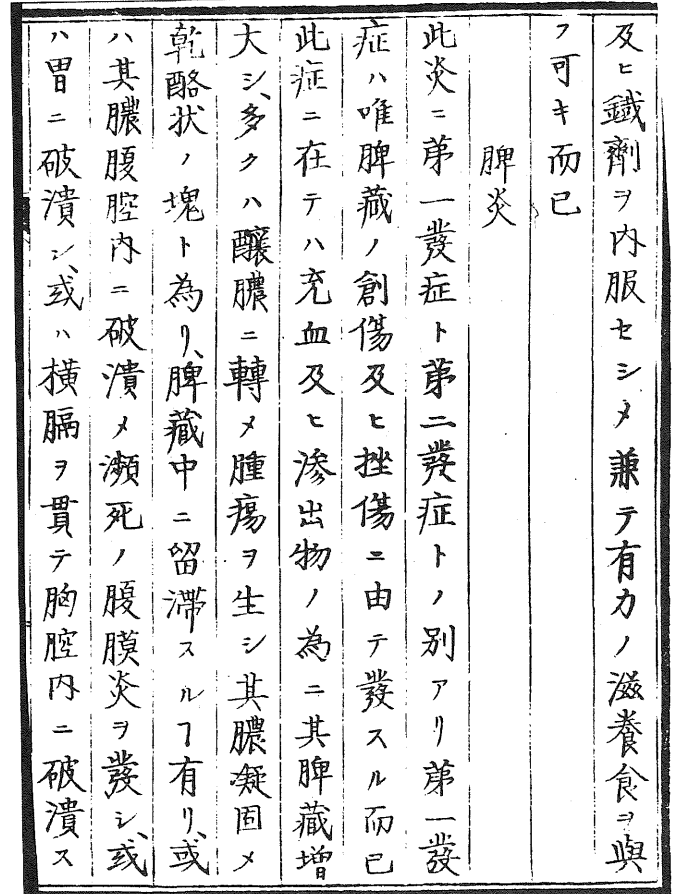 及ヒ鐡劑ヲ内服セシメ兼テ有力ノ滋養食ヲ與
フ可キ而已
脾炎
此炎ニ第一發症ト第二發症トノ別アリ第一發
症ハ唯脾藏ノ創傷及ヒ挫傷ニ由テ發スル而已
此症ニ在テハ充血及ヒ滲出物ノ為ニ其脾藏増
大シ、多クハ釀膿ニ轉メ腫瘍ヲ生シ其膿凝固メ
乾酪状ノ塊ト為リ、脾藏中ニ留滞スルヿ有リ、或
ハ其膿腹腔内ニ破潰メ瀕死ノ腹膜炎ヲ發シ、或
ハ胃ニ破潰シ、或ハ横膈ヲ貫テ胸腔内ニ破潰ス